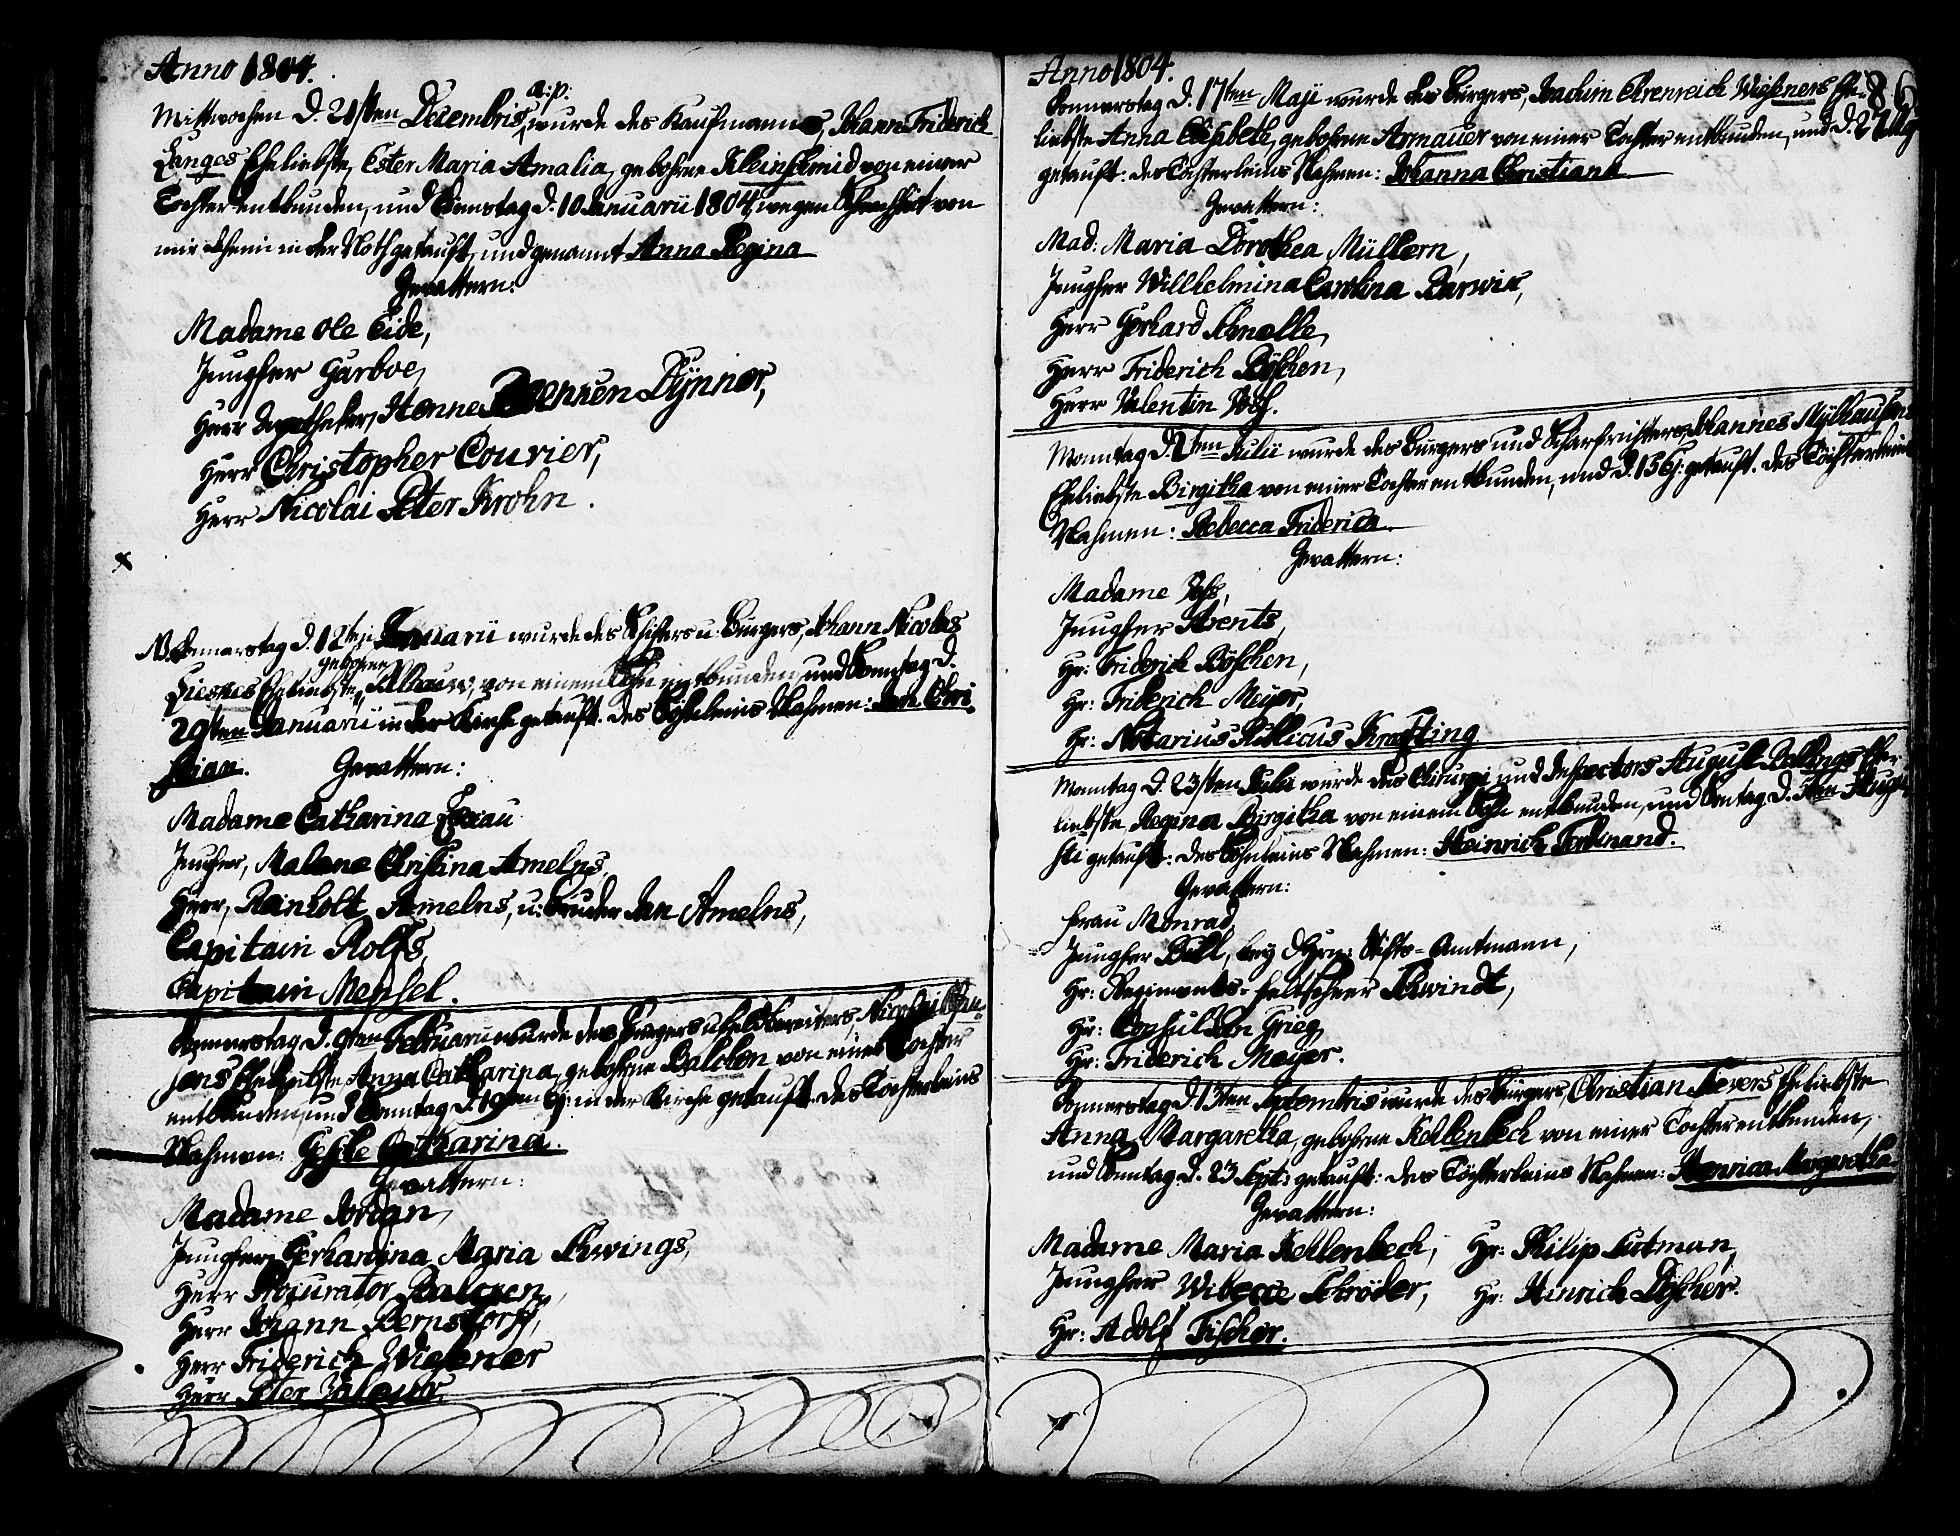 Anno 1804.
a: p:
Mittwochen d. 21sten Decembris, wurde des Kaufmanns, Johann Friderich
Langes Eheliebste, Ester Maria Amalia, gebohrne Kleinschmid von einer
Tochter entbunden, und Dienstag d. 10 Januarii 1804, wegen Schwachheit von
mir daheim in der Noth getauft, und genannt Anna Regina
Gevattern:
Madame Ole Eide,
Jungfer Garboe,
Herr Apotheker, Henne Dynner,
Herr Christopher Courier,
Herr Nicolai Peter Krohn.
Donnerstag d. 12ten Januarii wurde des Schiffers u: Bürgers, Johann Nicolas
gebohrne
Liesnes Eheliebste, von einem Sohn entbunden, und Sonntag d.
29sten Januarii in der Kirche getauft. des Söhnleins Nahmen: Jan Chri
stian. Gevattern:
Madame Catharina
Jungfer, Malene Christina Amelns,
Herr, Reinholt Amelns, u: Bruder Jan Amelns,
Capitain Rolfs,
Capitain Mensel.
Donnerstag d. 9ten Februarii wurde des Bürgers u: Feldbereiters, Nicolai
sens Eheliebste Anna Catharina, gebohrne Balchen von einer Tochter
entbunden, und Sonntag d. 19ten ej: in der Kirche getauft. des Töchterleins
Nahmen: Gesche Catharina.
Gevattern:
Madame Jordan,
Jungfer Gerhardina Maria Schwings,
Herr Procurator Balchen,
Herr Johann Bernstorff,
Herr Friderich Wiesener
Herr Peter
Anno 1804.
86
Donnerstag d. 17ten Maji wurde des Bürgers, Joachim Ehrenreich Wiesners Ehe-
liebste Anna Elisabeth, gebohrne Armauer von einer Tochter entbunden, und d. 27 Maji
getauft: des Töchterleins Nahmen: Johanna Christiana
Gevattern:
Mad: Maria Dorothea Müllern,
Jungfer Willhelmina Carolina Darwin,
Herr Gerhard Schnelle,
Herr Friderich Böschen,
Herr Valentin Voss.
Monntag d. 2ten Julii wurde des Bürgers und Scharfrichters, Johannes Mylhausens
Eheliebste Birgitha von einer Tochter entbunden, und d. 15 ej: getauft. des Töchterleins
Nahmen: Rebecca Friderica
Gevattern:
Madame Voss,
Jungfer Arents,
Hr: Friderich Böschen,
Hr: Friderich Meyer,
Hr: Notarius Publicus Krafting
Monntag d. 23sten Julii wurde des Chirurgi und Inspectors August Bullings Ehe-
liebste Regina Birgitha von einem Sohn entbunden, und Sontag d. 5ten Augu-
sti getauft: des Söhnleins Nahmen: Heinrich Ferdinand.
Gevattern:
Frau Monrad,
Jungfer Bull, bey dHrn: Stifts-Amtmann,
Hr: Regiments-Feltscheer Schwindt,
Hr: Consul John Grieg,
Hr: Friderich Meyer.
Donnerstag d. 13ten Septembris wurde des Bürgers, Christian Sievers Eheliebste
Anna Margaretha, gebohrne Kehlenbech von einer Tochter entbunden,
und Sonntag d. 23 Sept: getauft: des Töchterleins Nahmen: Henrica Margaretha
Gevattern:
Madame Maria Kehlenbech, Hr: Philip Lutman,
Jungfer Wibecce Schröder, Hr: Hinrich Dischér.
Hr: Adolf Fischer.